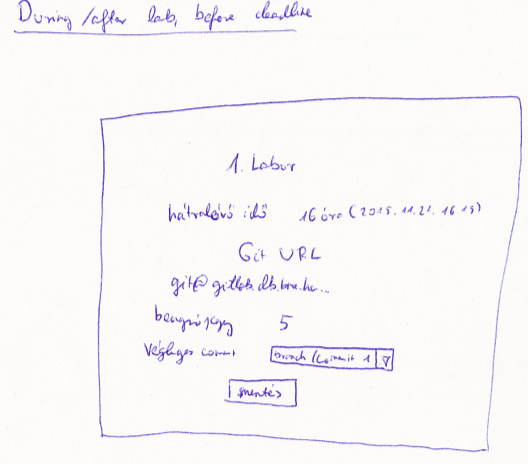 During / after lab, before deadline
1. Labor
hátralévő idő 16 óra (2015.11.21. 16:15)
Git URL
git@gitlab.db.bme.hu...
beugró jegy 5
Végleges commit branch / commit 1 ▽
mentés